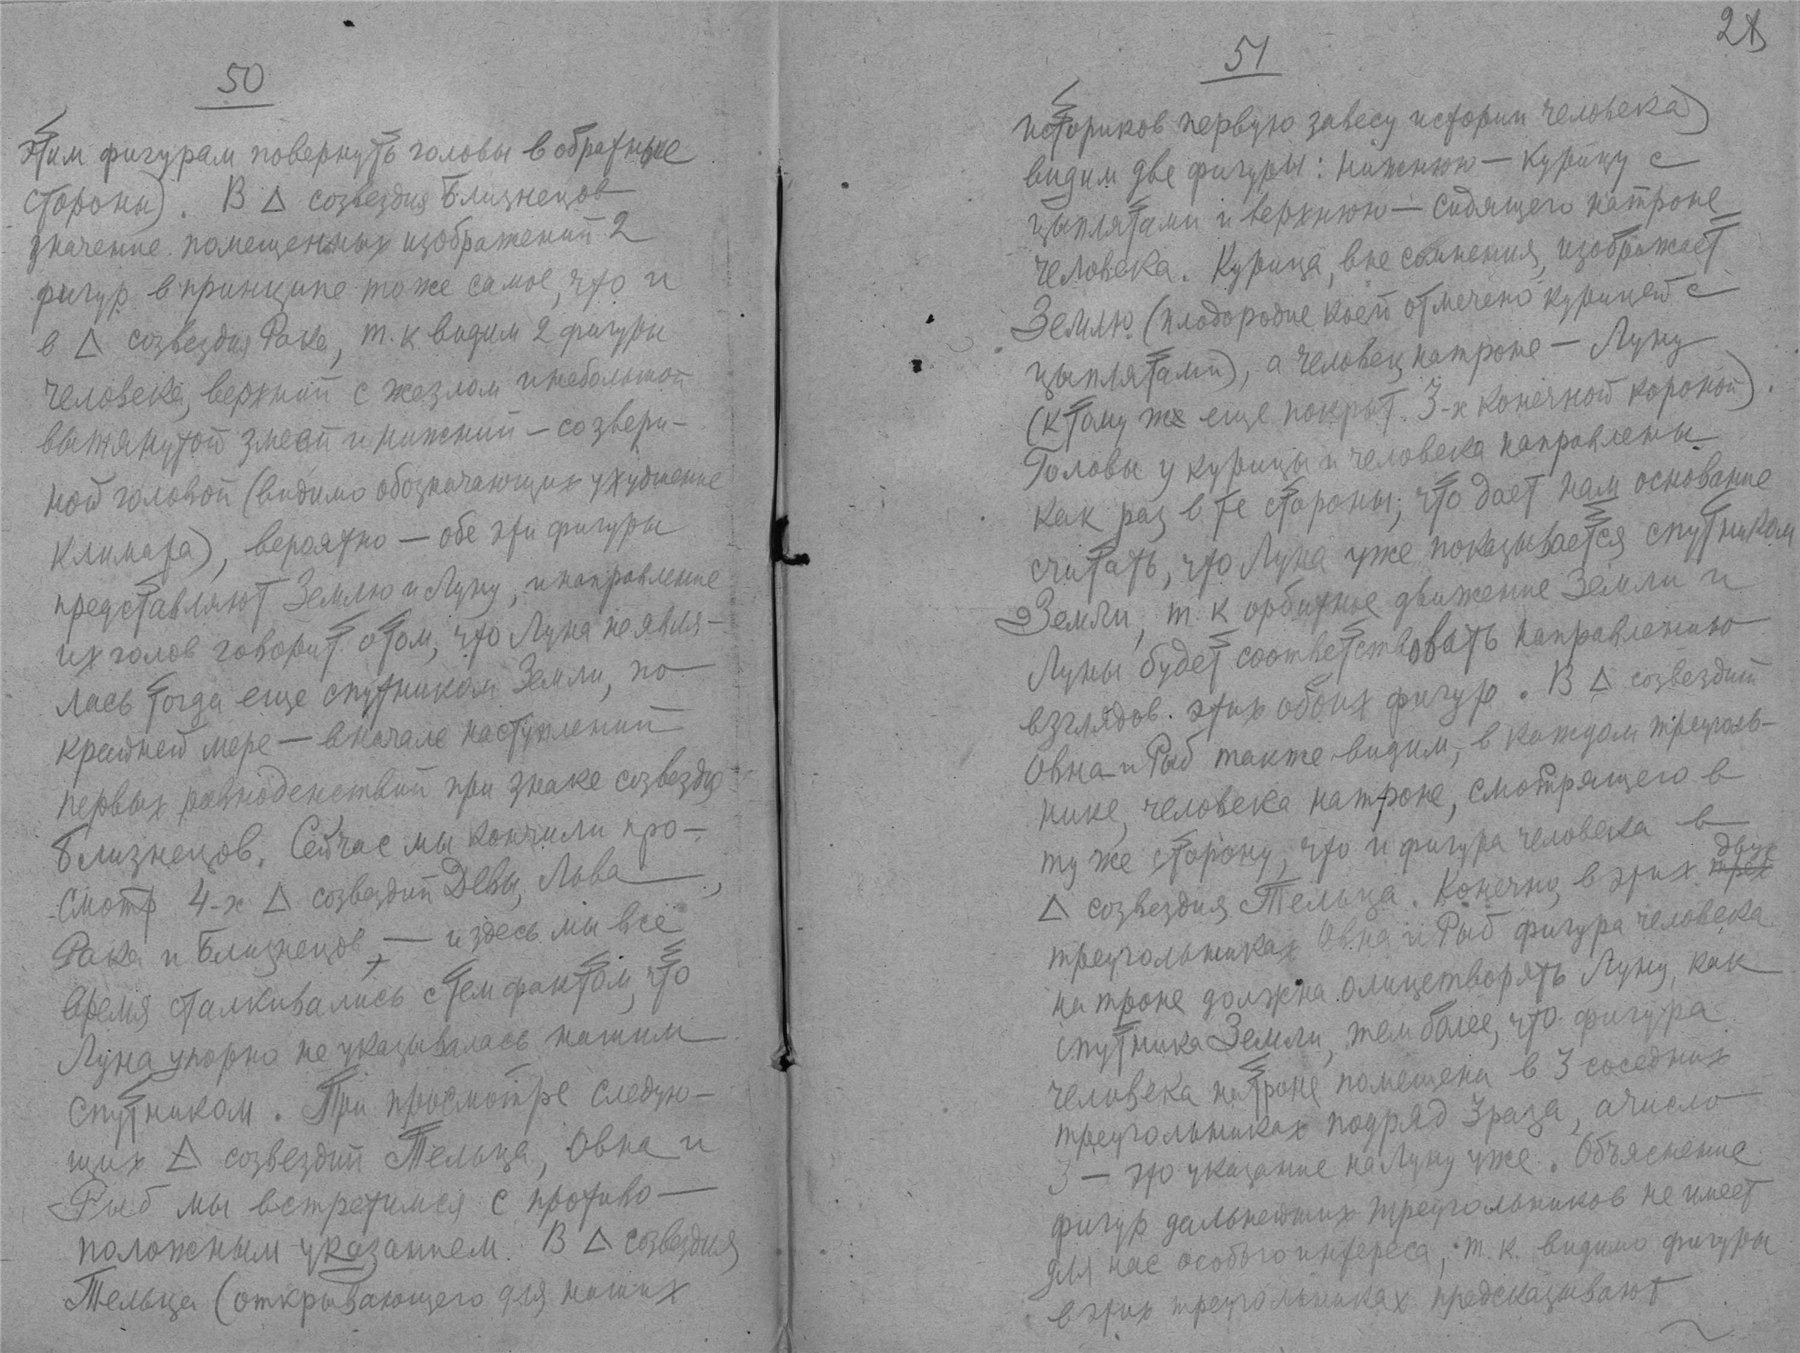 50
этим фигурам повернуть головы в обратные
стороны). В △ созвездия Близнецов
значение помещенных изображений 2
фигур в принципе то же самое, что и
в △ созвездия Рака, т. к видим 2 фигуры
человека, верхний с жезлом и небольшой
вытянутой змеей и нижний — со звери-
ной головой (видимо обозначающих ухудшение
климата), вероятно — обе эти фигуры
представляют Землю и Луну, и направление
их голов говорит о том, что Луна не явля-
лась тогда еще спутником Земли, по
крайней мере — в начале наступлений
первых равноденствий при знаке созвездия
Близнецов. Сейчас мы кончили про-
смотр 4-х △ созвездий Девы, Льва,
Рака и Близнецов, — и здесь мы все
время сталкивались с тем фактом, что
Луна упорно не указывалась нашим
спутником. При просмотре следую-
щих △ созвездий Тельца, Овна и
Рыб мы встретимся с противо-
положным указанием. В △ созвездия
Тельца (открывающего для наших
28
51
историков первую завесу истории человека)
видим две фигуры: нижнюю — курицу с
цыплятами и верхнюю — сидящего на троне
человека. Курица, вне сомнения, изображает
Землю (плодородие коей отмечено курицей с
цыплятами), а человек на троне — Луну
(к тому же еще покрыт 3-х конечной короной).
Головы у курицы и человека направлены
как раз в те стороны, что дает нам основание
считать, что Луна уже показывается спутником
Земли, т. к орбитное движение Земли и
Луны будет соответствовать направлению
взглядов этих обоих фигур. В △ созвездий
Овна и Рыб также видим, в каждом треуголь-
нике, человека на троне, смотрящего в
ту же сторону, что и фигура человека в
△ созвездия Тельца. Конечно, в этих трех двух
треугольниках Овна и Рыб фигура человека
на троне должна олицетворять Луну, как
спутника Земли, тем более, что фигура
человека на троне помещена в 3 соседних
треугольниках подряд 3 раза, а число
3 — это указание на Луну уже. Объяснение
фигур дальнейших треугольников не имеет
для нас особого интереса, т. к. видимо фигуры
в этих треугольниках предсказывают